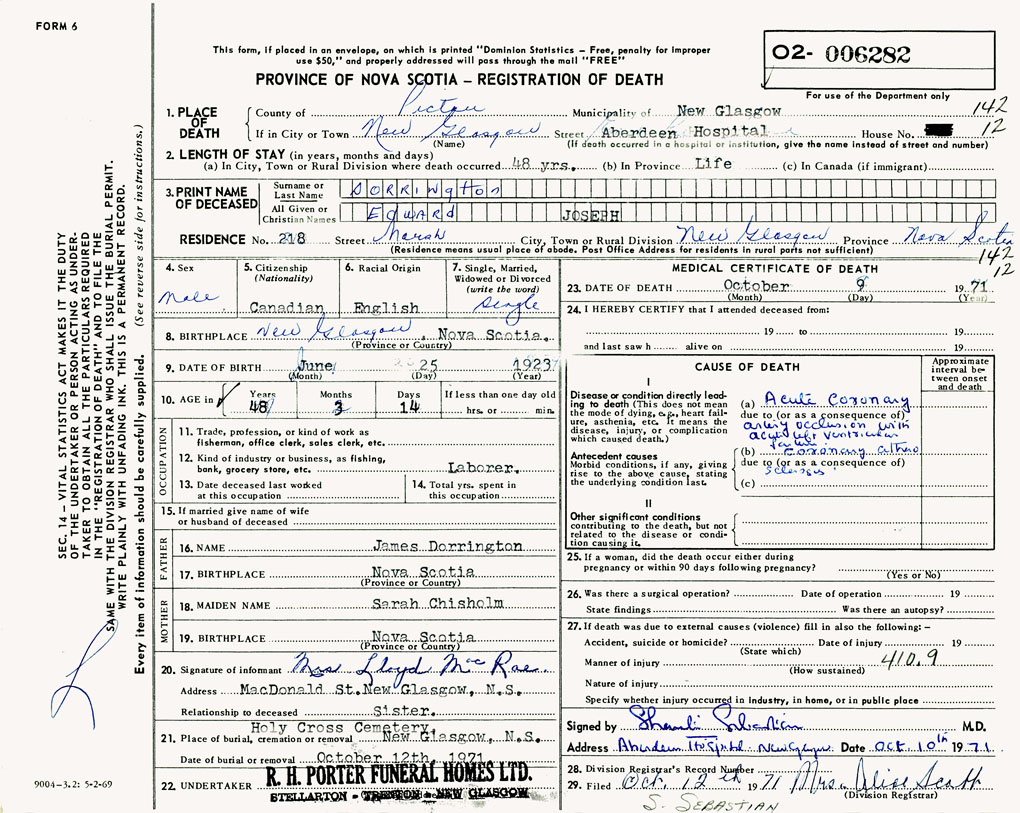 FORM 6
This form, if placed in an envelope, on which is printed "Dominion Statistics – Free, penalty for improper
use $50," and properly addressed will pass through the mail "FREE"
PROVINCE OF NOVA SCOTIA – REGISTRATION OF DEATH
02- 006282
For use of the Department only
142
12
1. PLACE OF DEATH
County of Pictou Municipality of New Glasgow
If in City or Town New Glasgow Street Aberdeen Hospital House No.
(Name) (If death occurred in a hospital or institution, give the name instead of street and number)
2. LENGTH OF STAY (in years, months and days)
(a) In City, Town or Rural Division where death occurred 48 yrs. (b) In Province Life (c) In Canada (if immigrant)
3. PRINT NAME OF DECEASED
Surname or Last Name DORRINgton
All Given or Christian Names EdwARd JOSEPH
RESIDENCE No. 218 Street Marsh City, Town or Rural Division New Glasgow Province Nova Scotia
(Residence means usual place of abode. Post Office Address for residents in rural parts not sufficient)
142
12
4. Sex
Male
5. Citizenship
(Nationality)
Canadian
6. Racial Origin
English
7. Single, Married,
Widowed or Divorced
(write the word)
Single
8. BIRTHPLACE New Glasgow, Nova Scotia.
(Province or Country)
9. DATE OF BIRTH June 25 1923
(Month) (Day) (Year)
10. AGE in
Years Months Days If less than one day
48 3 14 hrs. or min.
OCCUPATION
11. Trade, profession, or kind of work as
fisherman, office clerk, sales clerk, etc.
12. Kind of industry or business, as fishing,
bank, grocery store, etc. Laborer.
13. Date deceased last worked
at this occupation
14. Total yrs. spent in
this occupation
15. If married give name of wife
or husband of deceased
FATHER
16. NAME James Dorrington
17. BIRTHPLACE Nova Scotia
(Province or Country)
MOTHER
18. MAIDEN NAME Sarah Chisholm
19. BIRTHPLACE Nova Scotia
(Province or Country)
20. Signature of informant Mrs Lloyd McRae
Address MacDonald St.New Glasgow, N.S.
Relationship to deceased Sister.
Holy Cross Cemetery
21. Place of burial, cremation or removal New Glasgow, N.S.
Date of burial or removal October 12th, 1971
22. UNDERTAKER R. H. PORTER FUNERAL HOMES LTD.
STELLARTON - TRENTON - NEW GLASGOW
MEDICAL CERTIFICATE OF DEATH
23. DATE OF DEATH October 9 1971
(Month) (Day) (Year)
24. I HEREBY CERTIFY that I attended deceased from:
19 to 19
and last saw h alive on 19
CAUSE OF DEATH
Approximate
interval be-
tween onset
and death
I
Disease or condition directly lead-
ing to death (This does not mean
the mode of dying, e.g., heart fail-
ure, asthenia, etc. It means the
disease, injury, or complication
which caused death.)
(a) Acute Coronary
due to (or as a consequence of)
artery occlusion with
acute left ventricular
failure.
Antecedent causes
Morbid conditions, if any, giving
rise to the above cause, stating
the underlying condition last.
(b) coronary athero
due to (or as a consequence of)
sclerosis
(c)
II
Other significant conditions
contributing to the death, but not
related to the disease or condi-
tion causing it.
25. If a woman, did the death occur either during
pregnancy or within 90 days following pregnancy?
(Yes or No)
26. Was there a surgical operation? Date of operation 19
State findings Was there an autopsy?
27. If death was due to external causes (violence) fill in also the following:–
Accident, suicide or homicide? Date of injury 19
(State which)
Manner of injury 410.9
(How sustained)
Nature of injury
Specify whether injury occurred in industry, in home, or in public place
Signed by Sebastian M.D.
Address Aberdeen Hospital New Glasgow Date Oct. 10th 1971
28. Division Registrar's Record Number
29. Filed Oct. 12th 1971 Mrs. Alise Scott
(Division Registrar)
S. SEBASTIAN
9004-3.2: 5-2-69
SEC. 14 – VITAL STATISTICS ACT MAKES IT THE DUTY
OF THE UNDERTAKER OR PERSON ACTING AS UNDER-
TAKER TO OBTAIN ALL THE PARTICULARS REQUIRED
IN THE "REGISTRATION OF DEATH" AND TO FILE THE
SAME WITH THE DIVISION REGISTRAR WHO SHALL ISSUE THE BURIAL PERMIT.
WRITE PLAINLY WITH UNFADING INK. THIS IS A PERMANENT RECORD.
Every item of information should be carefully supplied. (See reverse side for instructions.)